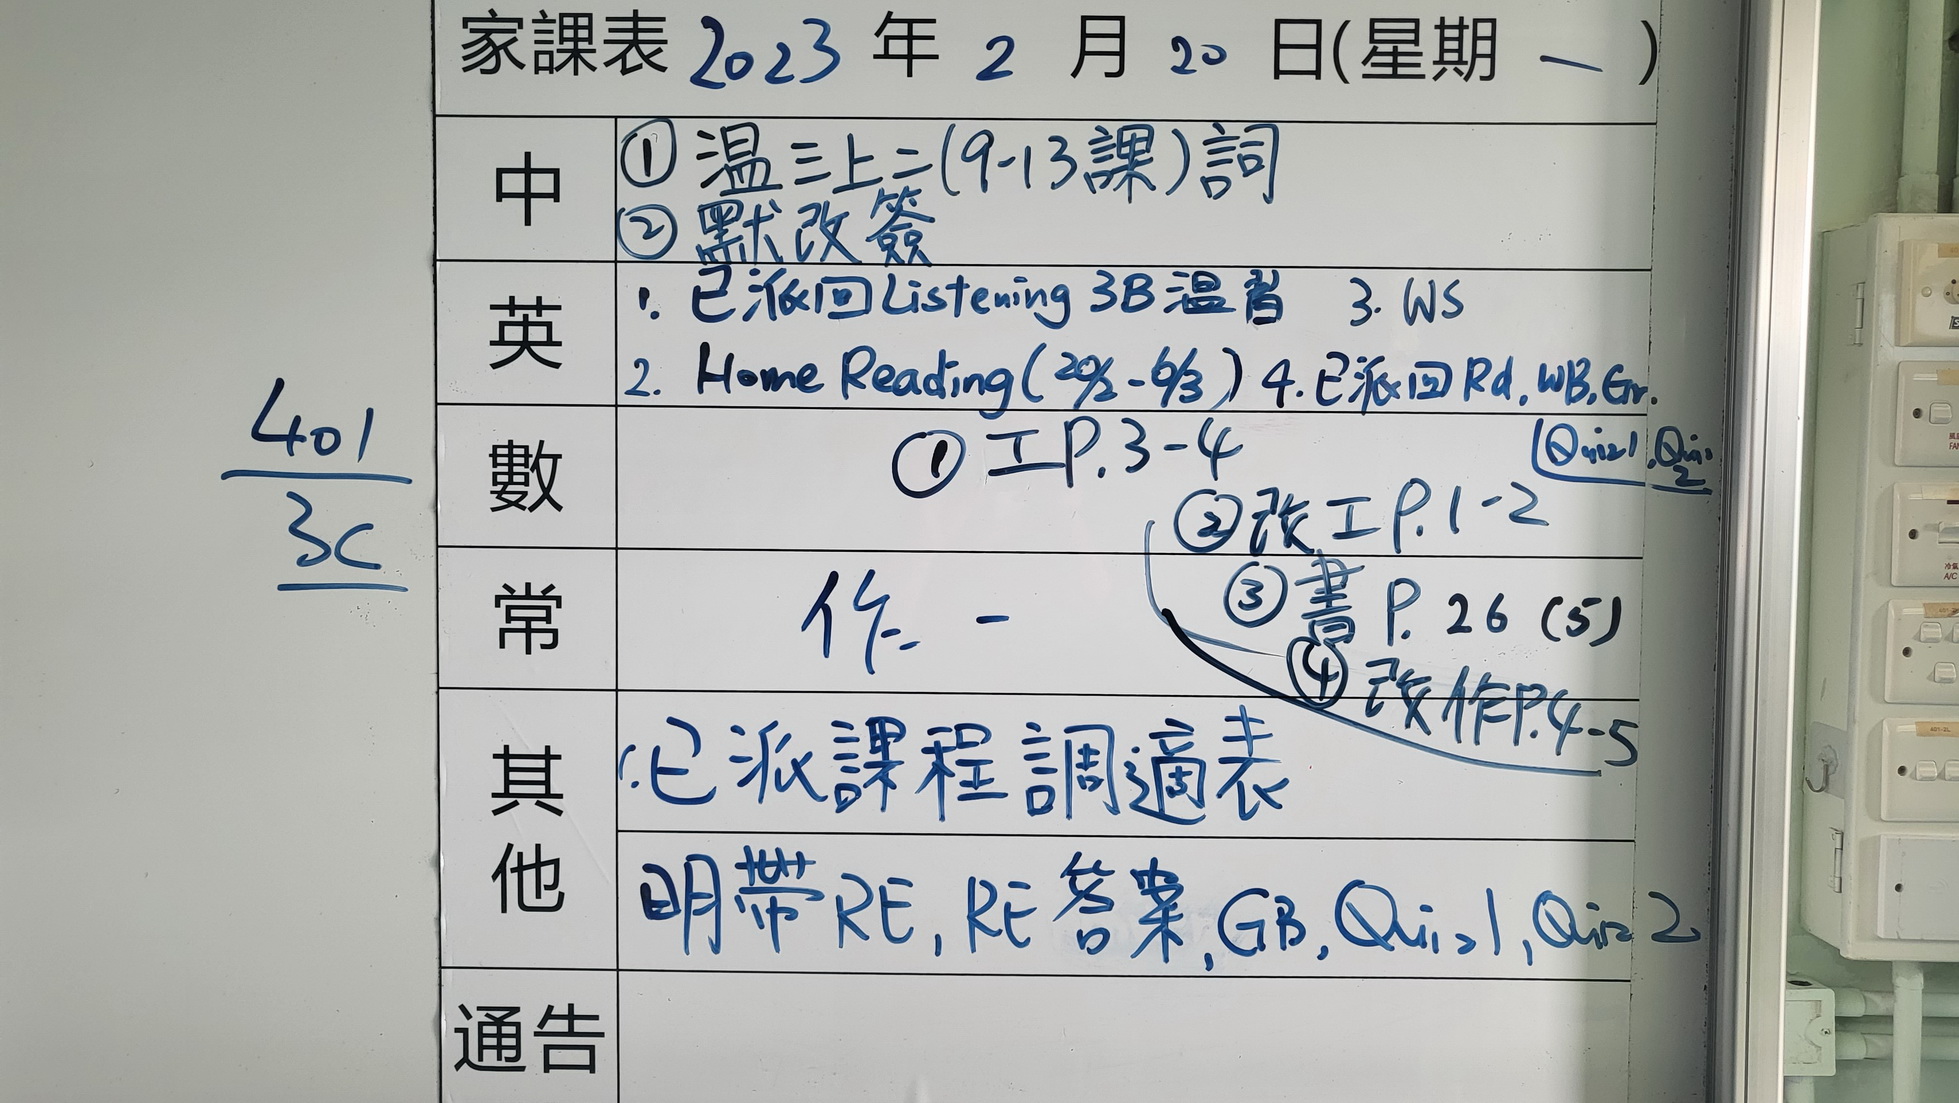 家課表 2023 年 2 月 20 日(星期 一 )
中
① 温三上二(9-13課)詞
② 默改簽
英
1. 已派回Listening 3B温習 3. WS
2. Home Reading(20/2-6/3) 4.已派回Rd, WB, Gr.
Quiz1, Quiz 2
數
① 工P.3-4
② 改工P.1-2
③ 書 P. 26 (5)
④ 改作P.4-5
常
作 -
401
3C
其他
1.已派課程調適表
明帶RE, RE答案, GB, Quiz1, Quiz 2
通告